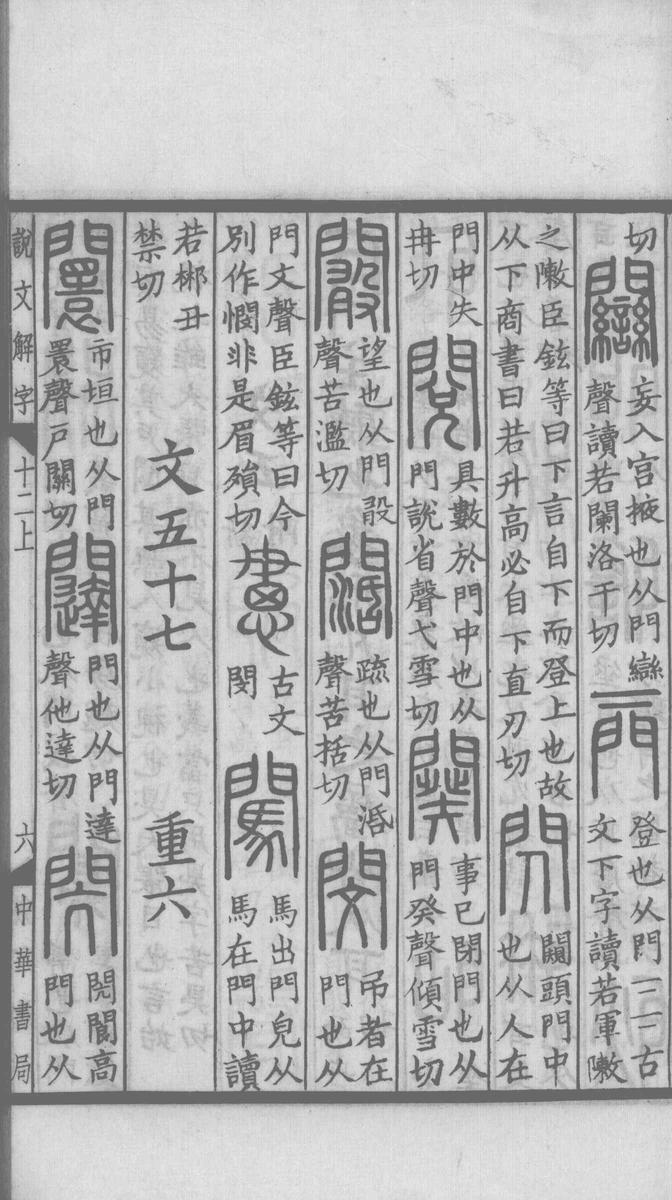 切
妄入宮掖也从門䜌
聲讀若闌洛干切
登也从門二二古
文下字讀若軍敶
之敶臣鉉等曰下言自下而登上也故
从下商書曰若升高必自下直刃切
閃
闚頭門中
也从人在
門中失
冉切
閱
具數於門中也从
門說省聲弋雪切
闋
事已閉門也从
門癸聲傾雪切
闞
望也从門敢
聲苦濫切
闊
疏也从門活
聲苦括切
閔
弔者在
門也从
門文聲臣鉉等曰今
別作憫非是眉殞切
古文
閔
闖
馬出門皃从
馬在門中讀
若郴丑
禁切
文五十七 重六
闤
市垣也从門
睘聲戶關切
闥
門也从門達
聲他達切
閌
閌閬高
門也从
說文解字 十二上 六 中華書局